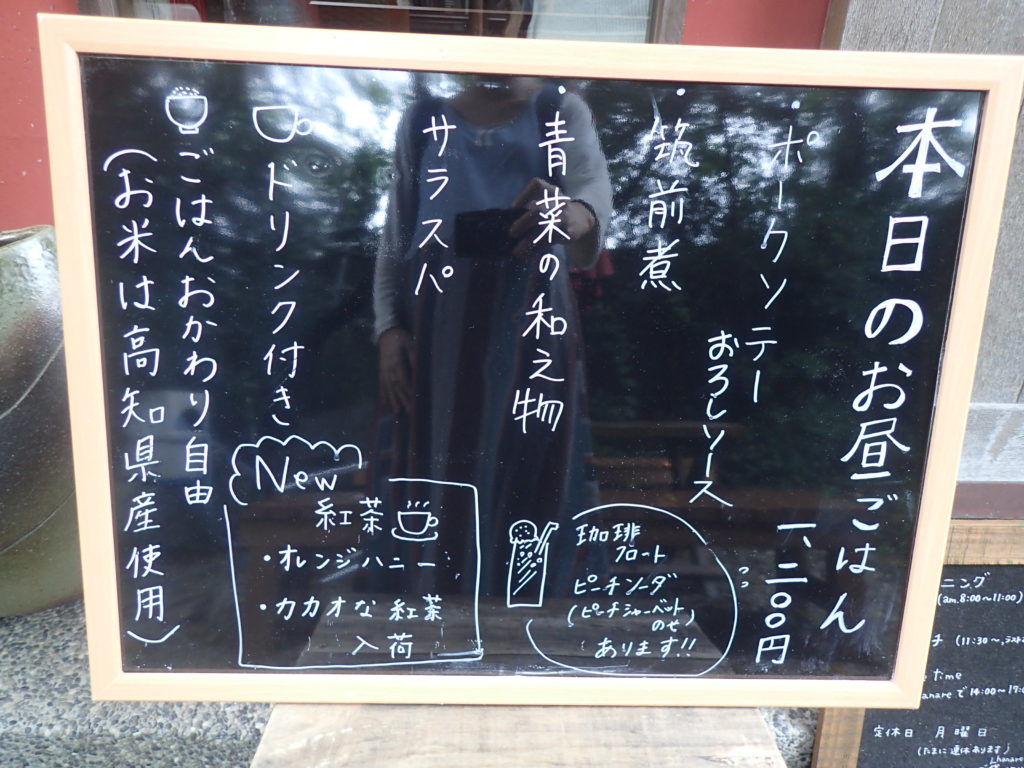 本日のお昼ごはん
一、二〇〇円
・ポークソテー
おろしソース
・筑前煮
・青菜の和え物
サラスパ
ドリンク付き
ごはんおかわり自由
(お米は高知県産使用)
New
紅茶
・オレンジハニー
・カカオな紅茶
入荷
珈琲
フロート
ピーチソーダ
(ピーチシャーベット
のせ)
あります!!
ニング
(am.8:00〜11:00)
チ (11:30〜
time
anareで14:00〜17:0
定休日 月曜日
(たまに連休あります)
hanare